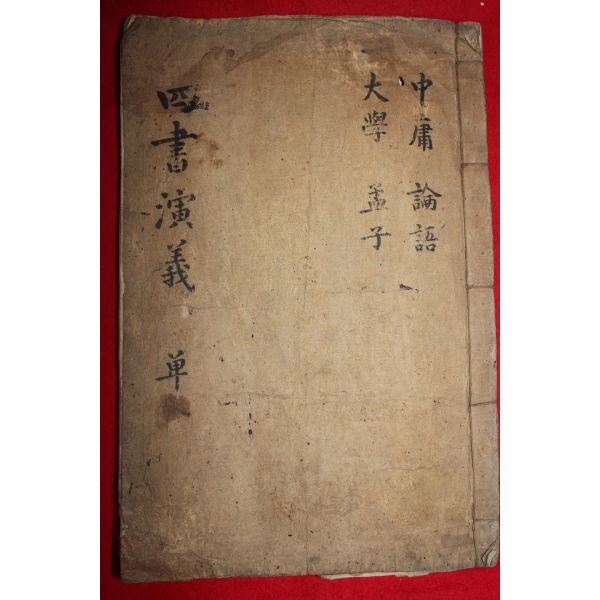 中庸 論語
大學 孟子
四書演義 单